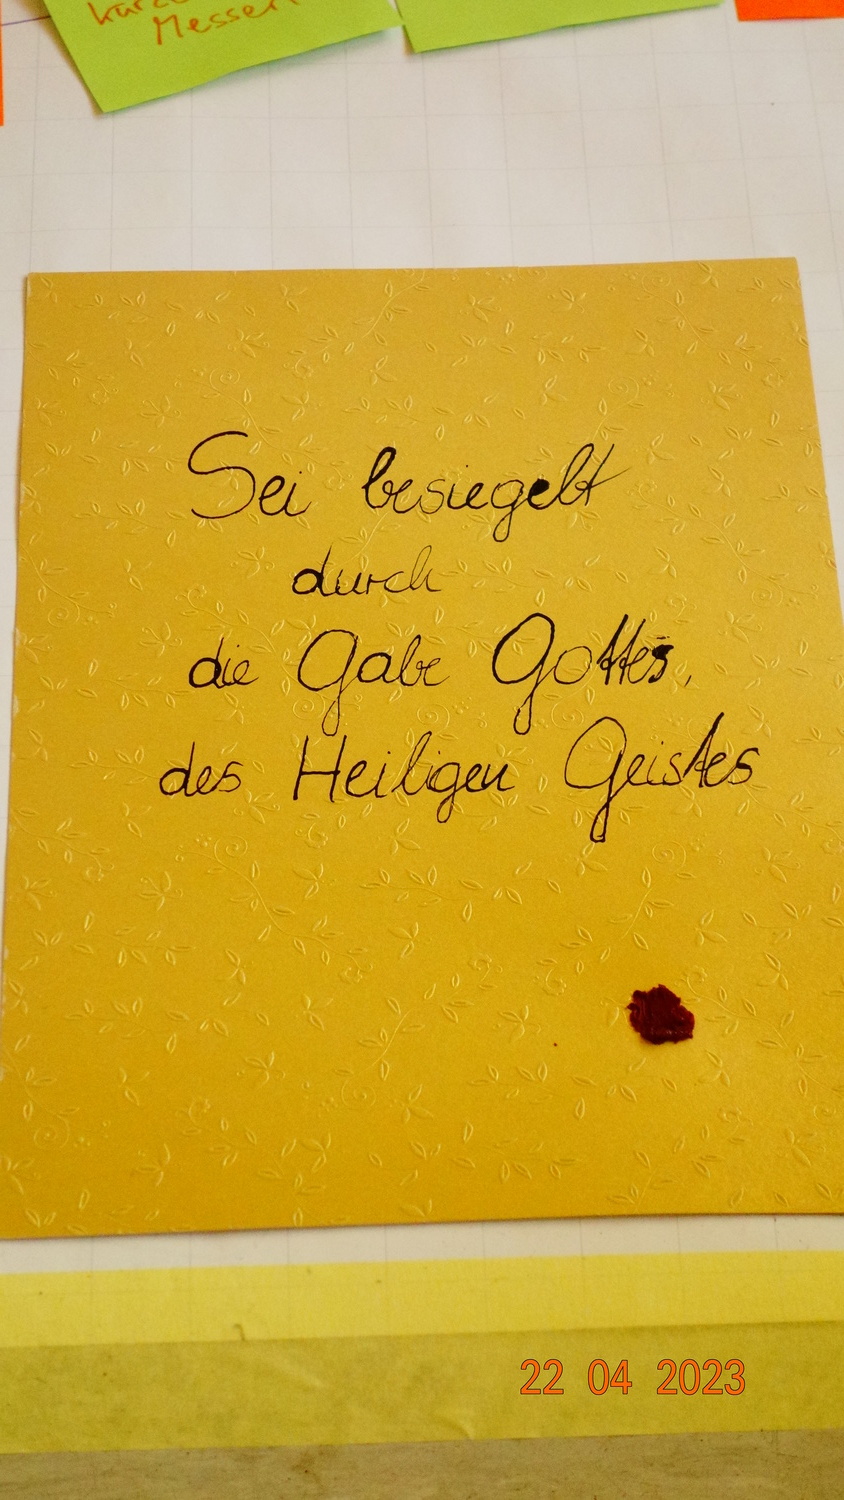 Messen
Sei besiegelt
durch
die Gabe Gottes,
des Heiligen Geistes
22 04 2023